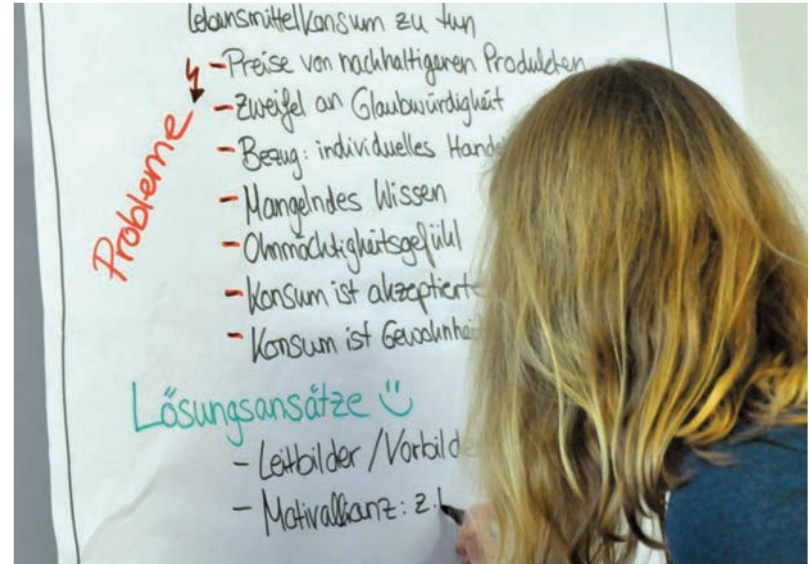 Lebensmittelkonsum zu tun
Probleme
- Preise von nachhaltigeren Produkten
- Zweifel an Glaubwürdigkeit
- Bezug: individuelles Hande
- Mangelndes Wissen
- Ohnmächtigkeitsgefühl
- Konsum ist akzeptierte
- Konsum ist Gewohnhei
Lösungsansätze
- Leitbilder / Vorbilde
- Motivallianz: z.